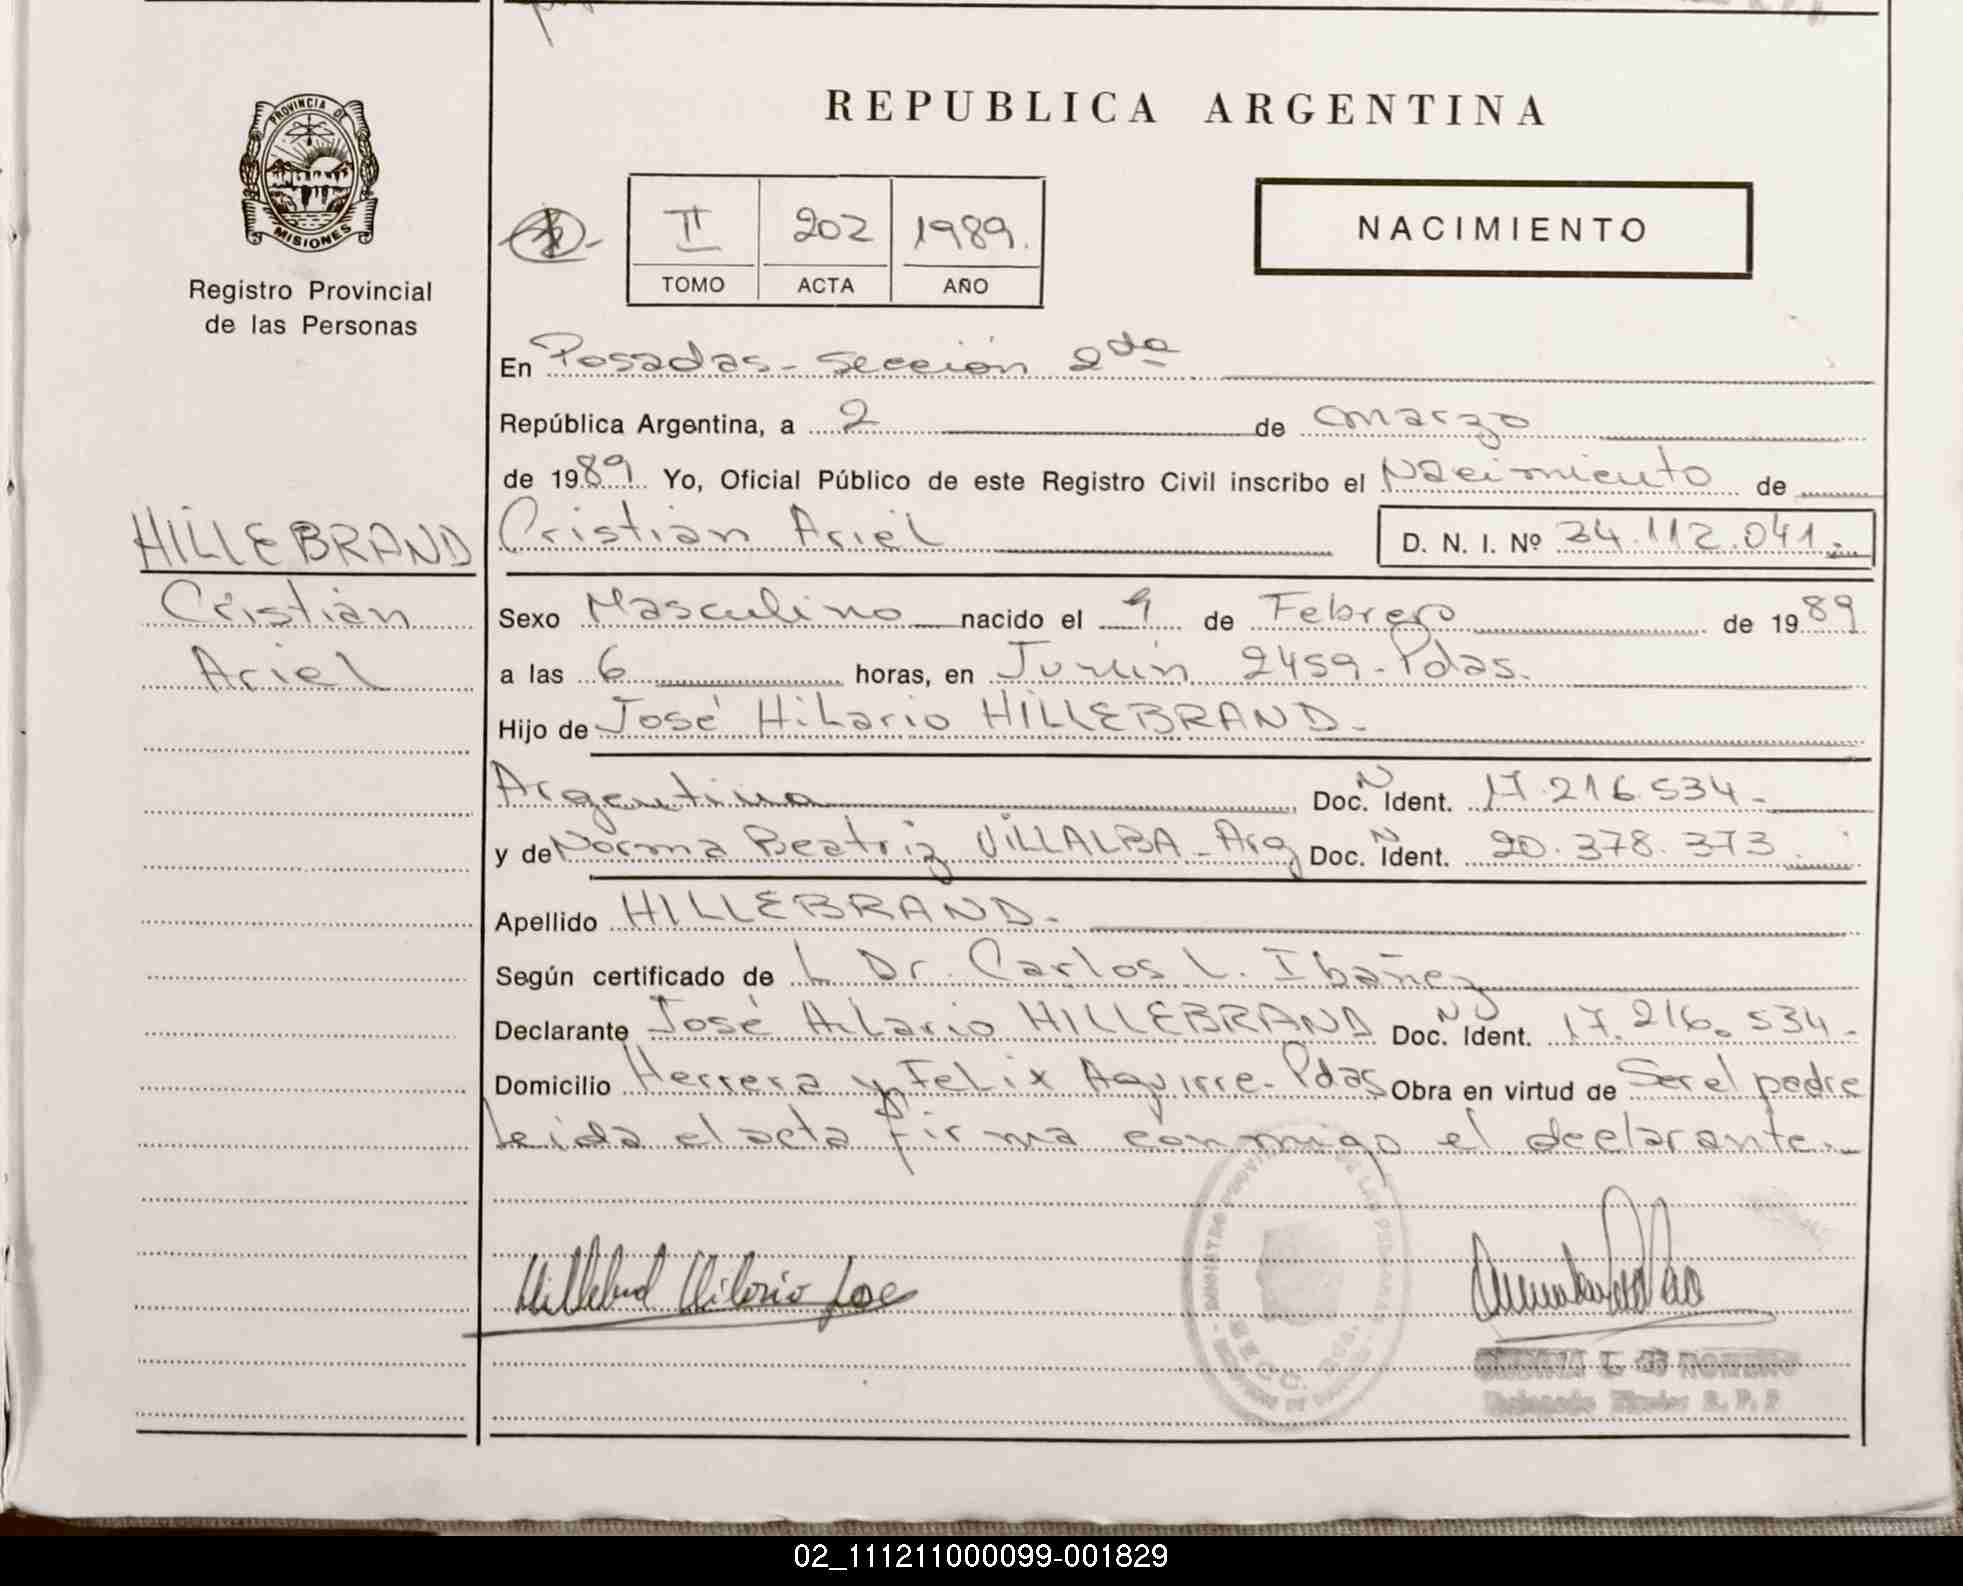 REPUBLICA ARGENTINA
PROVINCIA DE
MISIONES
Registro Provincial
de las Personas
II 202 1989.
TOMO ACTA AÑO
NACIMIENTO
En Posadas - Sección 2da
República Argentina, a 2 de marzo
de 1989. Yo, Oficial Público de este Registro Civil inscribo el Nacimiento de
HILLEBRAND
Cristian
Ariel
Cristian Ariel D. N. I. Nº 34.112.041.-
Sexo Masculino nacido el 9 de Febrero de 1989
a las 6 horas, en Junín 2459 - Pdas.
Hijo de José Hilario HILLEBRAND.-
Argentina Doc. N Ident. 17.216.534.-
y de Norma Beatriz VILLALBA - Arg Doc. N Ident. 20.378.373.
Apellido HILLEBRAND.-
Según certificado de L Dr. Carlos L. Ibañez
Declarante José Hilario HILLEBRAND Doc. N Ident. 17.216.534.-
Domicilio Herrera y Felix Aguirre - Pdas Obra en virtud de Ser el padre
Leida el acta firma conmigo el declarante.-
Hilario Jose
DE ROMERO
R. P. P
02_111211000099-001829